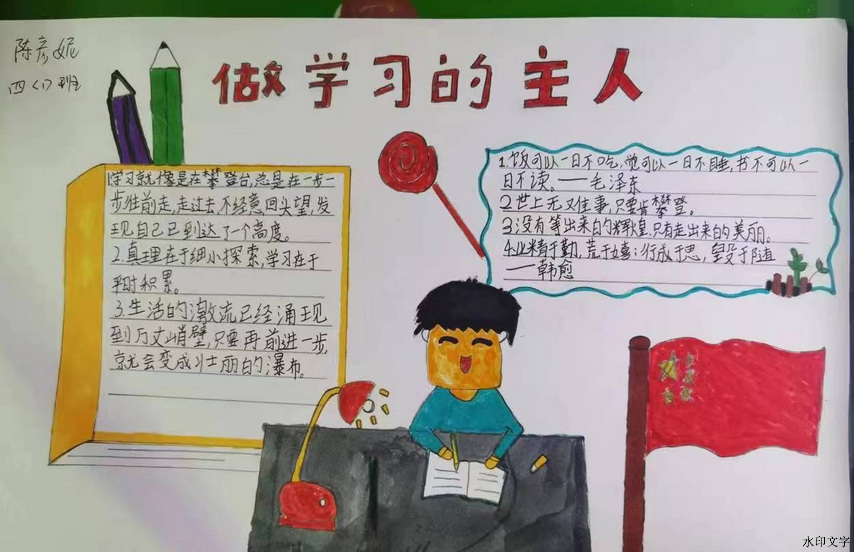 陈彦妮
四(1)班
做学习的主人
1学习就像是在攀登台,总是在一步一
步往前走,走过去,不经意回头望,发
现自己已到达了一个高度。
2.真理在于细小探索,学习在于
平时积累。
3.生活的激流已经涌现
到万丈峭壁,只要再前进一步,
就会变成壮丽的瀑布。
1.饭可以一日不吃,觉可以一日不睡,书不可以一
日不读。——毛泽东
2世上无又佳事,只要肯攀登。
3没有等出来的辉煌,只有走出来的美丽。
4.业精于勤,荒于嬉;行成于思,毁于随
——韩愈
水印文字